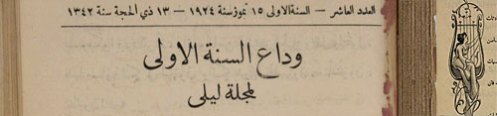 العدد العاشر — السنة الاولى ١٥ تموز سنة ١٩٢٤ — ١٣ ذي الحجة سنة ١٣٤٢
وداع السنة الاولى
لمجلة ليلى